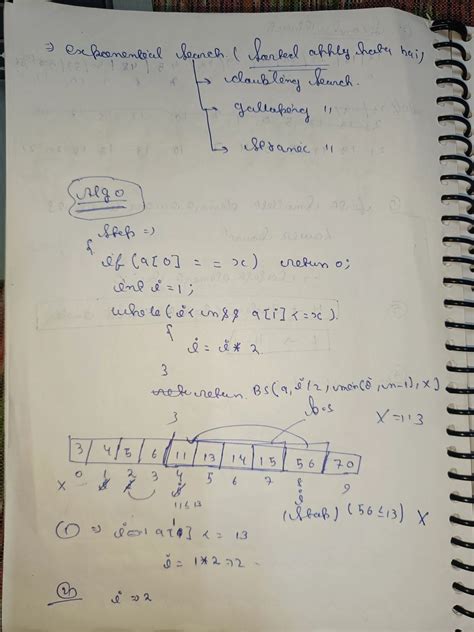 ⇒ exponential search. (Sorted apply hota hai)
→ doubling search.
→ galloping "
→ Struzic "
Algo
Step ⇒
{
if (a[0] == x) return 0;
int i = 1;
while (i < n && a[i] <= x)
{
i = i * 2
}
return BS(a, i/2, min(i, n-1), x)
}
b.s
X = 113
3 4 5 6 11 13 14 15 56 70
0 1 2 3 4 5 6 7 8 9
X i i i i
11 ≤ 13
(Stop) (56 ≤ 13) X
① ⇒ i=1 a[1] <= 13
i = 1*2 = 2
② i = 2